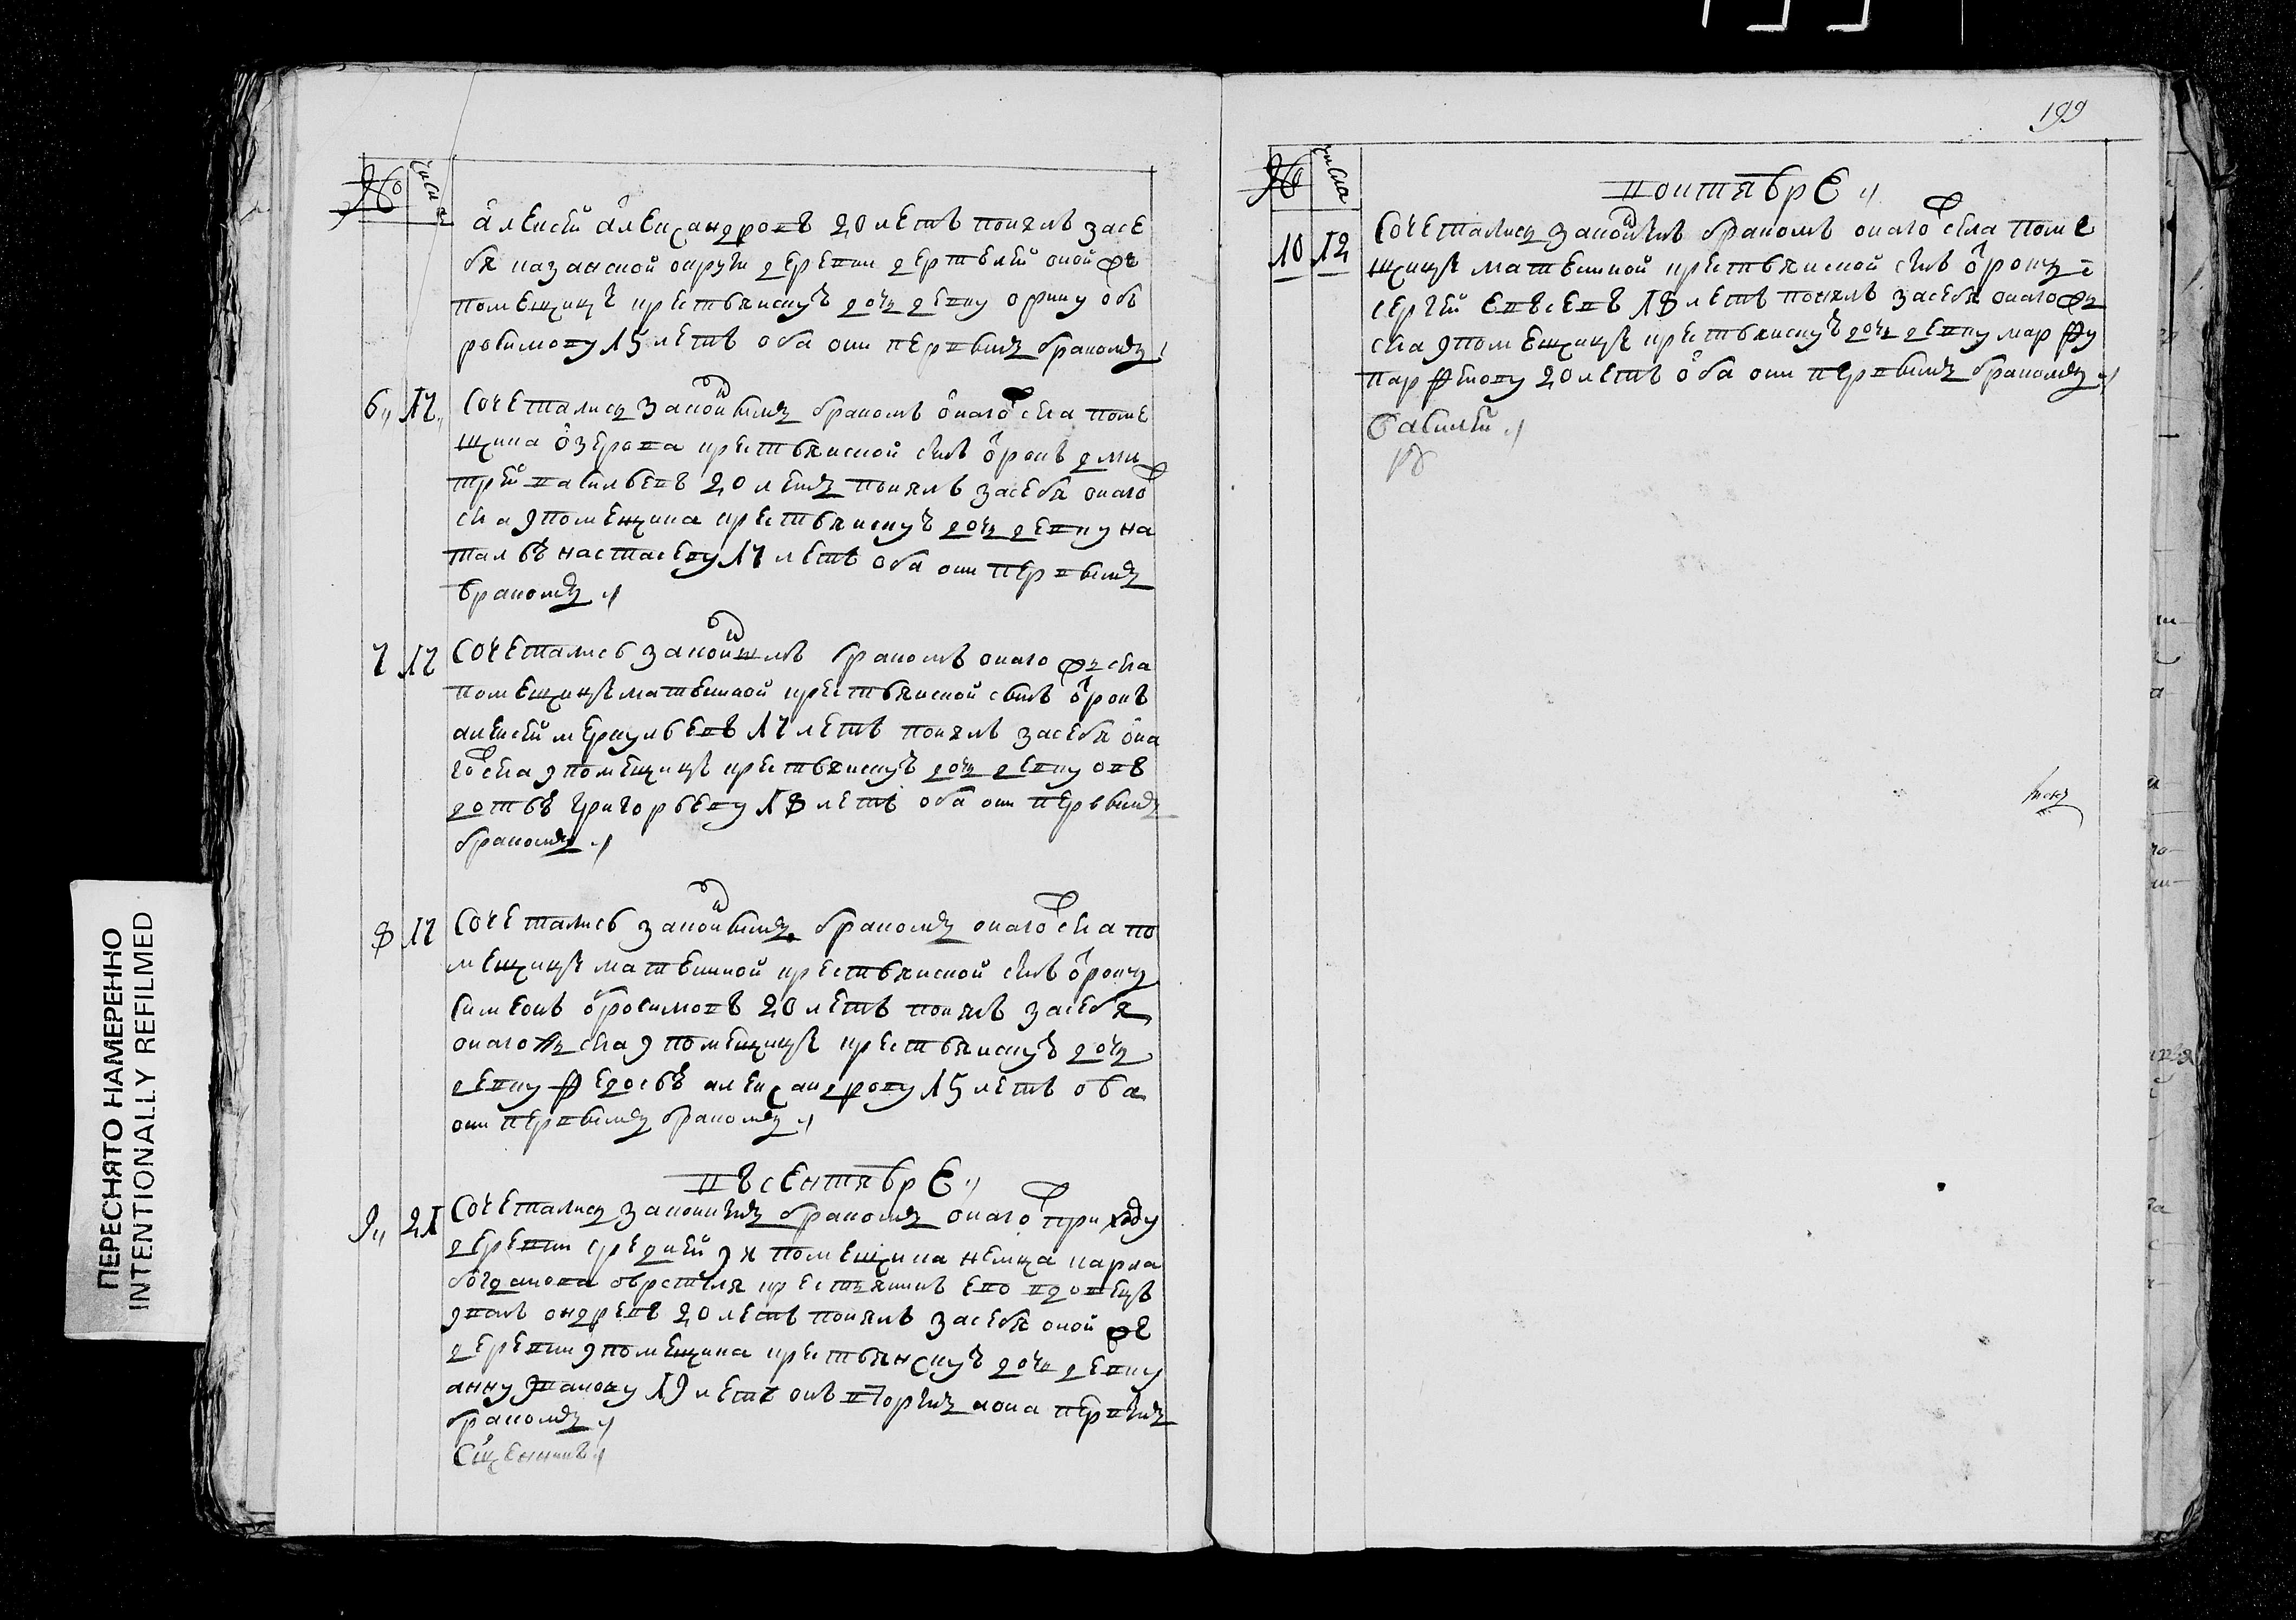 199
№ числа
алексей александровъ 20 летъ понялъ засе
бя казанской округи деревни дертюлей оной же
помещицъ крестьянскую дочь девку орину об
росимову 15 летъ оба они первымъ бракомъ
6 17 Сочетались законнымъ бракомъ онаго села поме
щика озерова крестьянской сынъ отрокъ дми
трей васильевъ 20 летъ понялъ засебя онаго
села упомещика крестьянскую дочь девку на
талью настасеву 17 летъ оба они первымъ
бракомъ
7 17 Сочетались законнымъ бракомъ онаго жъ села
помещицы крестьянской сынъ отрокъ
алексей меркульевъ 17 летъ понялъ засебя она
го села упомещицы крестьянскую дочь девку ов
дотью григорьеву 18 летъ оба они первымъ
бракомъ
8 17 Сочетались законнымъ бракомъ онаго села по
мещицы крестьянской сынъ отрокъ
симеонъ обросимовъ 20 летъ понялъ засебя
онаго жъ села упомещицы крестьянскую дочь
девку федосью александрову 15 летъ оба
они первымъ бракомъ
въ сентябре
9 21 Сочетались законнымъ бракомъ онаго приходу
деревни средней помещика немца карла
богданова крестьянинъ ево вдовецъ
иванъ андреевъ 20 летъ понялъ засебя оной же
деревни упомещика крестьянскую дочь девку
анну иванову 19 летъ онъ вторымъ аона первымъ
бракомъ
Священникъ
№ числа
в октябре
10 12 Сочетались законнымъ бракомъ онаго села поме
щицы крестьянской сынъ отрокъ
сергей евсеевъ 18 летъ понялъ засебя онаго жъ
села упомещицы крестьянскую дочь девку марфу
парфенову 20 летъ оба они первымъ бракомъ
Василей
ПЕРЕСНЯТО НАМЕРЕННО
INTENTIONALLY REFILMED